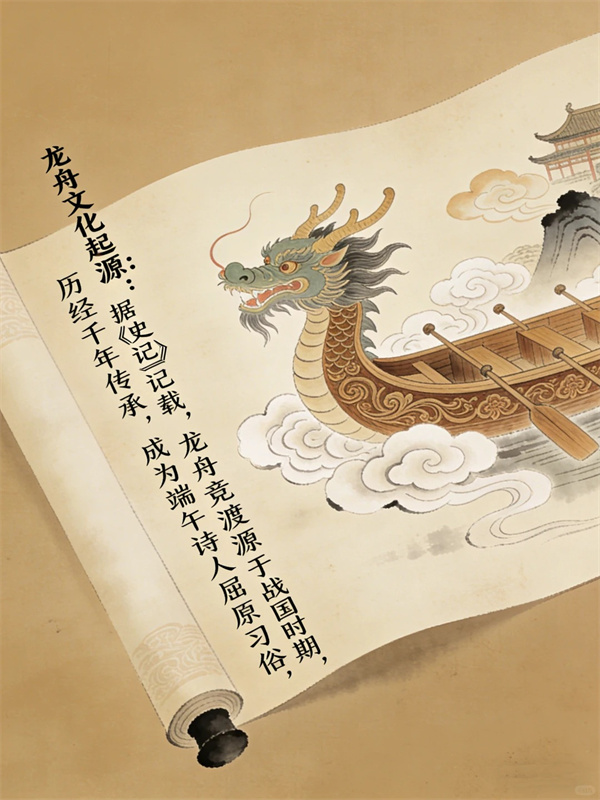 龙舟文化起源：：据《史记》记载，龙舟竞渡源于战国时期，
历经千年传承，成为端午诗人屈原习俗，